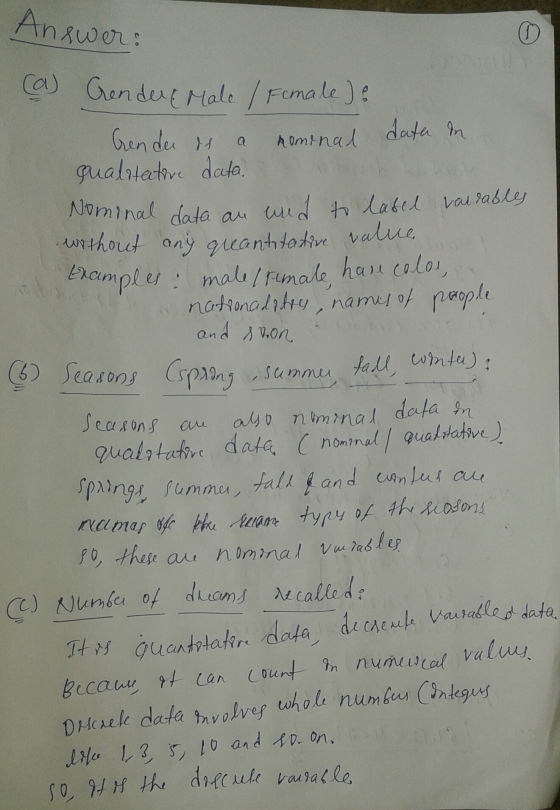 Answer:
①
(a) Gender (Male / Female):
Gender is a nominal data in
qualitative data.
Nominal data are used to label variables
without any quantitative value.
Examples: male/Female, hair color,
nationalities, names of people
and so.on.
(b) Seasons (spring, summer, fall, winter):
Seasons are also nominal data in
qualitative data. (nominal / qualitative).
springs, summer, fall and winters are
names of the types of the seasons
so, these are nominal variables.
(c) Number of dreams recalled:
It is quantitative data, discrete variable data.
Because, it can count in numerical values.
Discrete data involves whole number (integers
like 1, 3, 5, 10 and so.on.
so, it is the discrete variable.